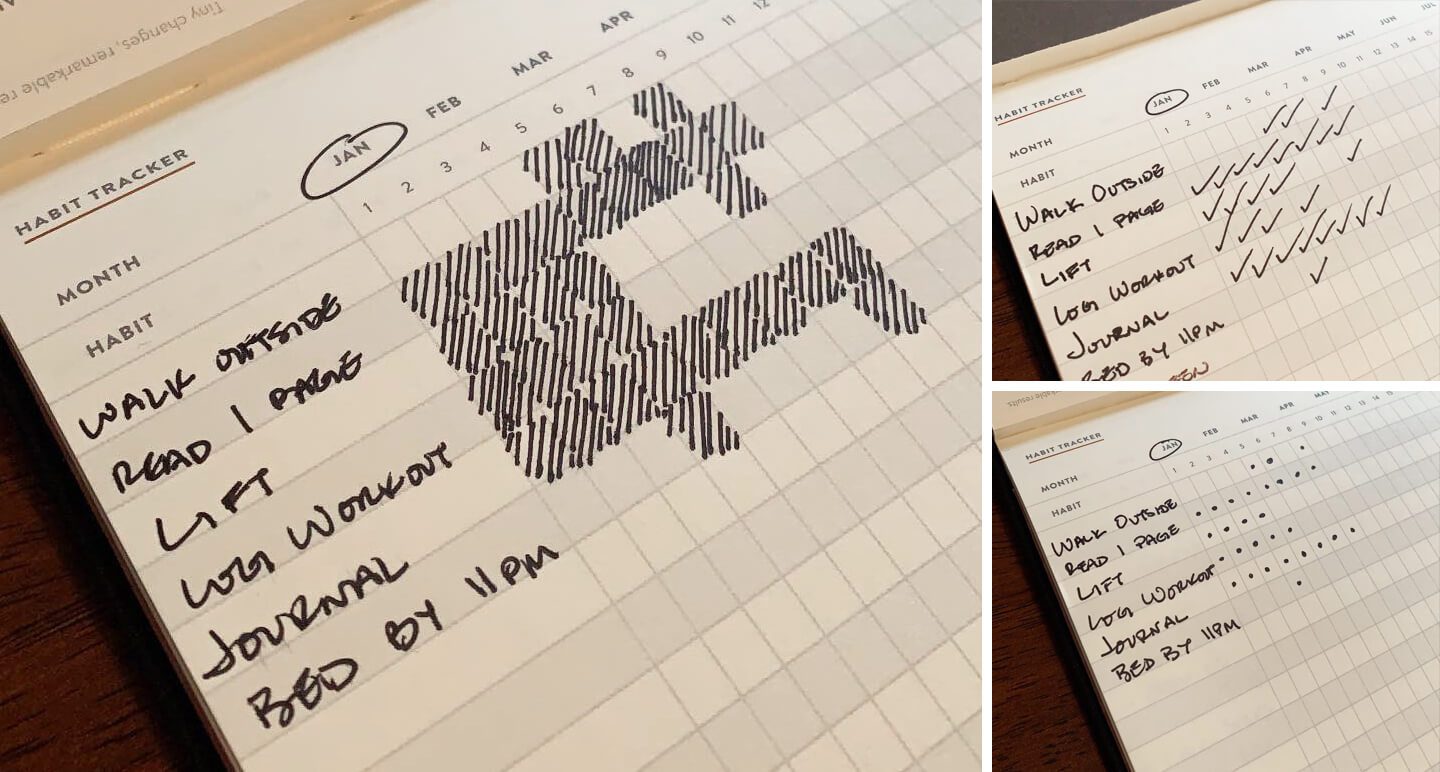 Tiny changes, remarkable re
HABIT TRACKER
MONTH JAN FEB MAR APR
HABIT 1 2 3 4 5 6 7 8 9 10 11 12
WALK OUTSIDE
READ 1 PAGE
LIFT
LOG WORKOUT
JOURNAL
BED BY 11PM
HABIT TRACKER
MONTH JAN FEB MAR APR MAY JUN JUL
HABIT 1 2 3 4 5 6 7 8 9 10 11 12 13 14 15
WALK OUTSIDE
READ 1 PAGE
LIFT
LOG WORKOUT
JOURNAL
BED BY 11PM
kable results
HABIT TRACKER
MONTH JAN FEB MAR APR MAY
HABIT 1 2 3 4 5 6 7 8 9 10 11 12 13 14
WALK OUTSIDE
READ 1 PAGE
LIFT
LOG WORKOUT
JOURNAL
BED BY 11PM